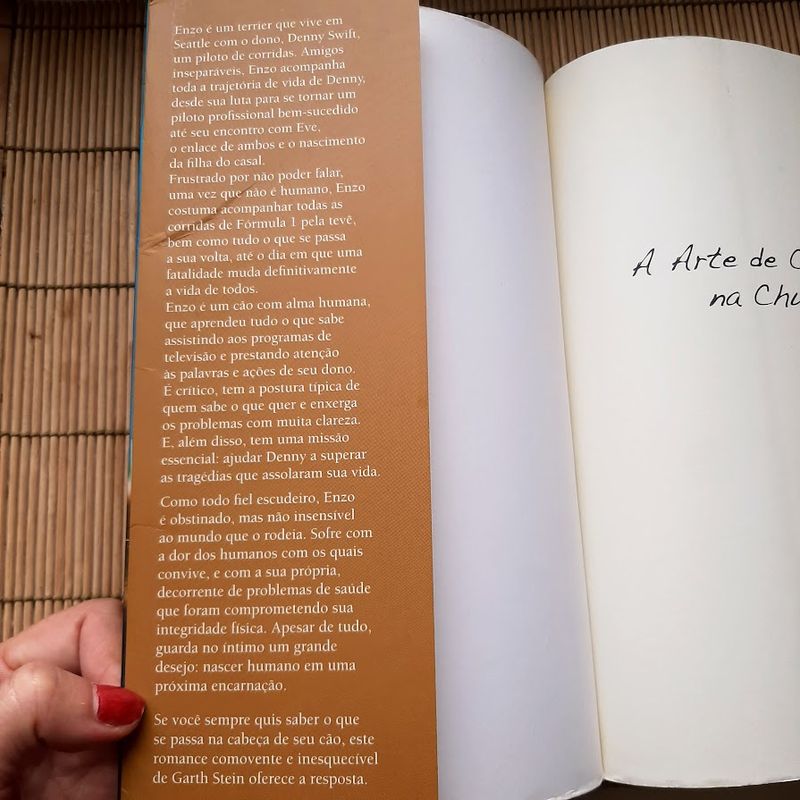 Enzo é um terrier que vive em
Seattle com o dono, Denny Swift,
um piloto de corridas. Amigos
inseparáveis, Enzo acompanha
toda a trajetória de vida de Denny,
desde sua luta para se tornar um
piloto profissional bem-sucedido
até seu encontro com Eve,
o enlace de ambos e o nascimento
da filha do casal.
Frustrado por não poder falar,
uma vez que não é humano, Enzo
costuma acompanhar todas as
corridas de Fórmula 1 pela tevê,
bem como tudo o que se passa
a sua volta, até o dia em que uma
fatalidade muda definitivamente
a vida de todos.
Enzo é um cão com alma humana,
que aprendeu tudo o que sabe
assistindo aos programas de
televisão e prestando atenção
às palavras e ações de seu dono.
É crítico, tem a postura típica de
quem sabe o que quer e enxerga
os problemas com muita clareza.
E, além disso, tem uma missão
essencial: ajudar Denny a superar
as tragédias que assolaram sua vida.
Como todo fiel escudeiro, Enzo
é obstinado, mas não insensível
ao mundo que o rodeia. Sofre com
a dor dos humanos com os quais
convive, e com a sua própria,
decorrente de problemas de saúde
que foram comprometendo sua
integridade física. Apesar de tudo,
guarda no íntimo um grande
desejo: nascer humano em uma
próxima encarnação.
Se você sempre quis saber o que
se passa na cabeça de seu cão, este
romance comovente e inesquecível
de Garth Stein oferece a resposta.
A Arte de
na